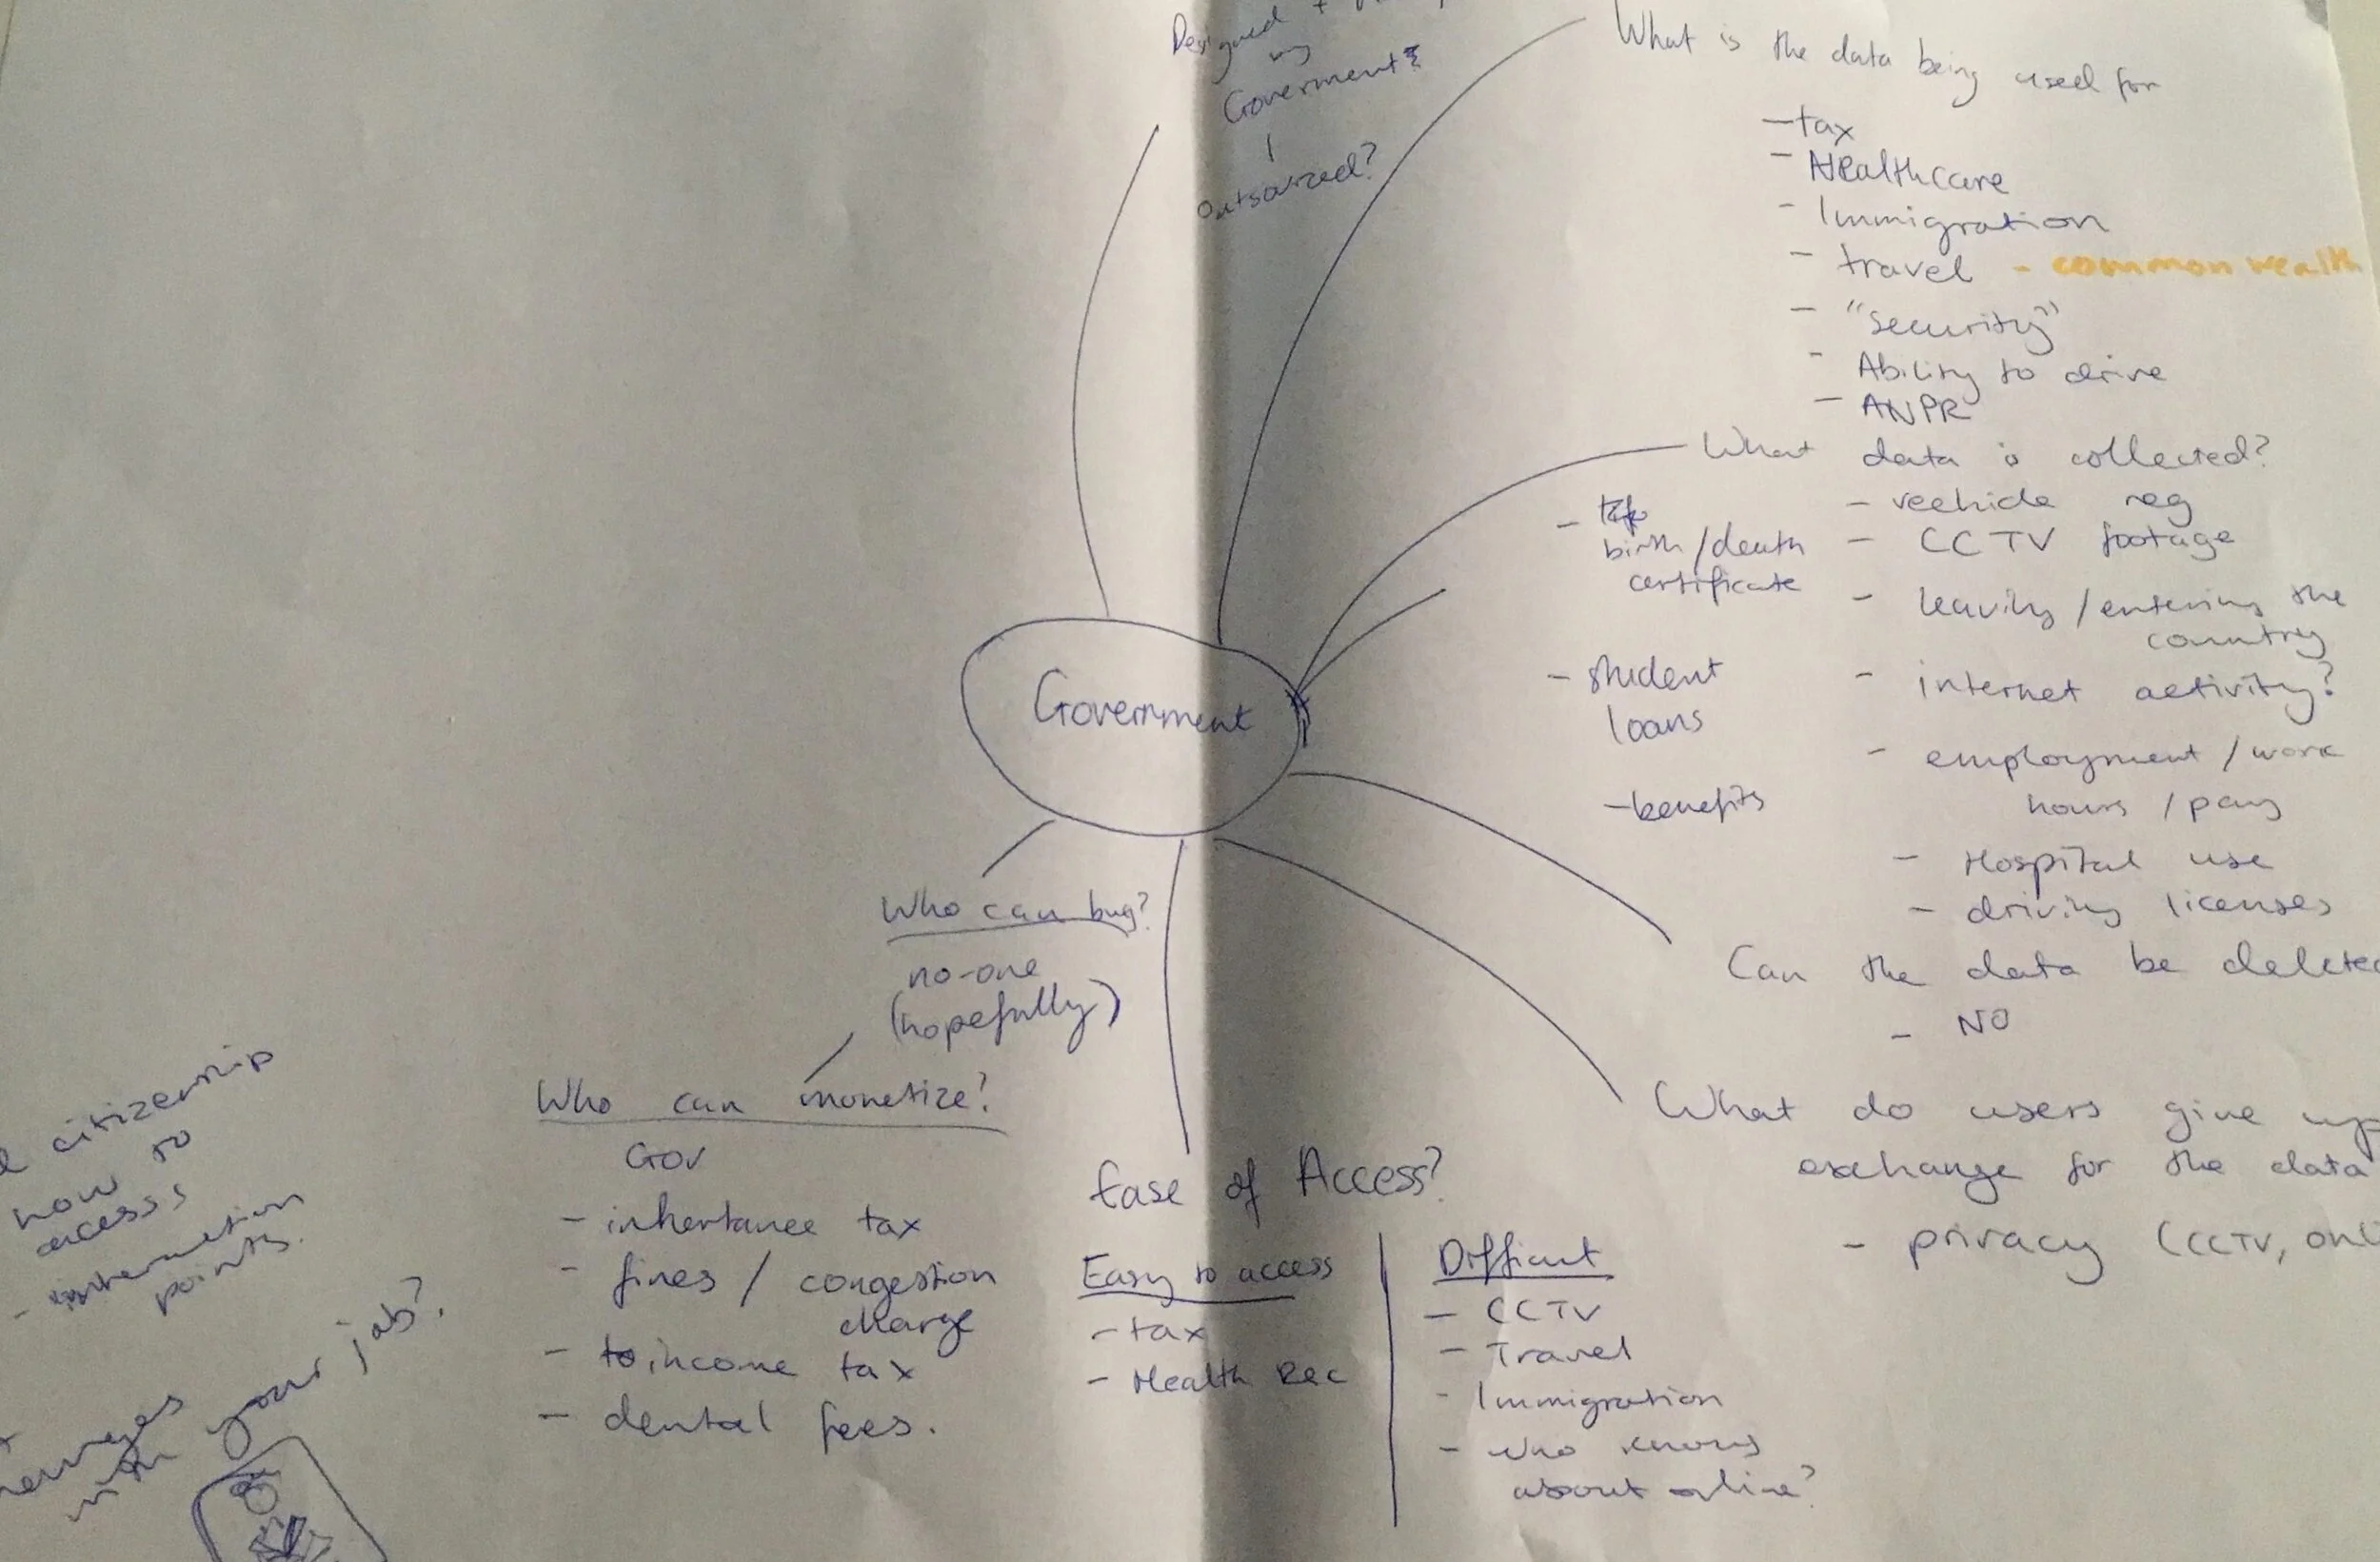 Designed +
by
Goverment?
/
outsourced?
What is the data being used for
- tax
- Healthcare
- Immigration
- travel - common wealth
- "security"
- Ability to drive
- ANPR
What data is collected?
- birth/death
certificate
- student
loans
- benefits
- veehicle reg
- CCTV footage
- leaving/entering the
country
- internet activity?
- employment/work
hours/pay
- Hospital use
- driving licenses
Government
Can the data be deleted
- NO
What do users give up
exchange for the data
- privacy (CCTV, onl
Who can bug?
no-one
(hopefully)
Who can monetize?
Gov
- inhertance tax
- fines / congestion
charge
- income tax
- dental fees.
Ease of Access?
Easy to access
- tax
- Health Rec
Difficut
- CCTV
- Travel
- Immigration
- who knows
about online?
citizenship
how to
access
- information
points.
your job?